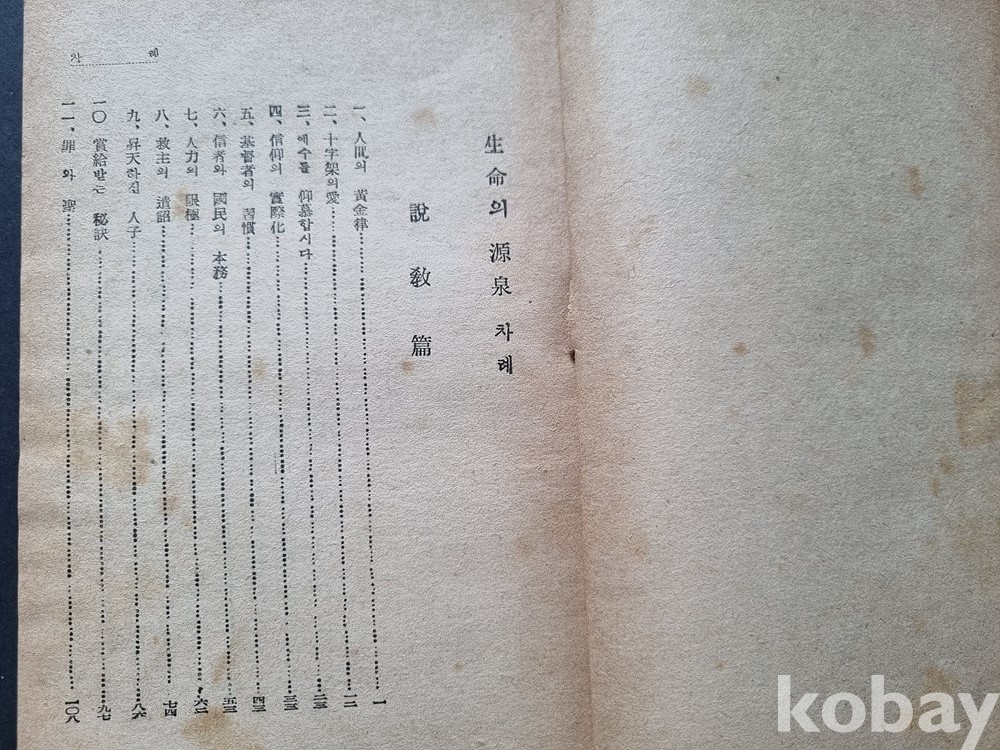 生命의 源泉 차례
說敎篇
一、人間의 黃金律 一
二、十字架의 愛 一二
三、예수를 仰慕합시다 二三
四、信仰의 實際化 三三
五、基督者의 習慣 四三
六、信者와 國民의 本務 五三
七、人力의 限極 六二
八、救主의 遺詔 七四
九、昇天하신 人子 八六
一〇 賞給받는 秘訣 九七
一一、罪와 聖 一〇八
차례
kobay